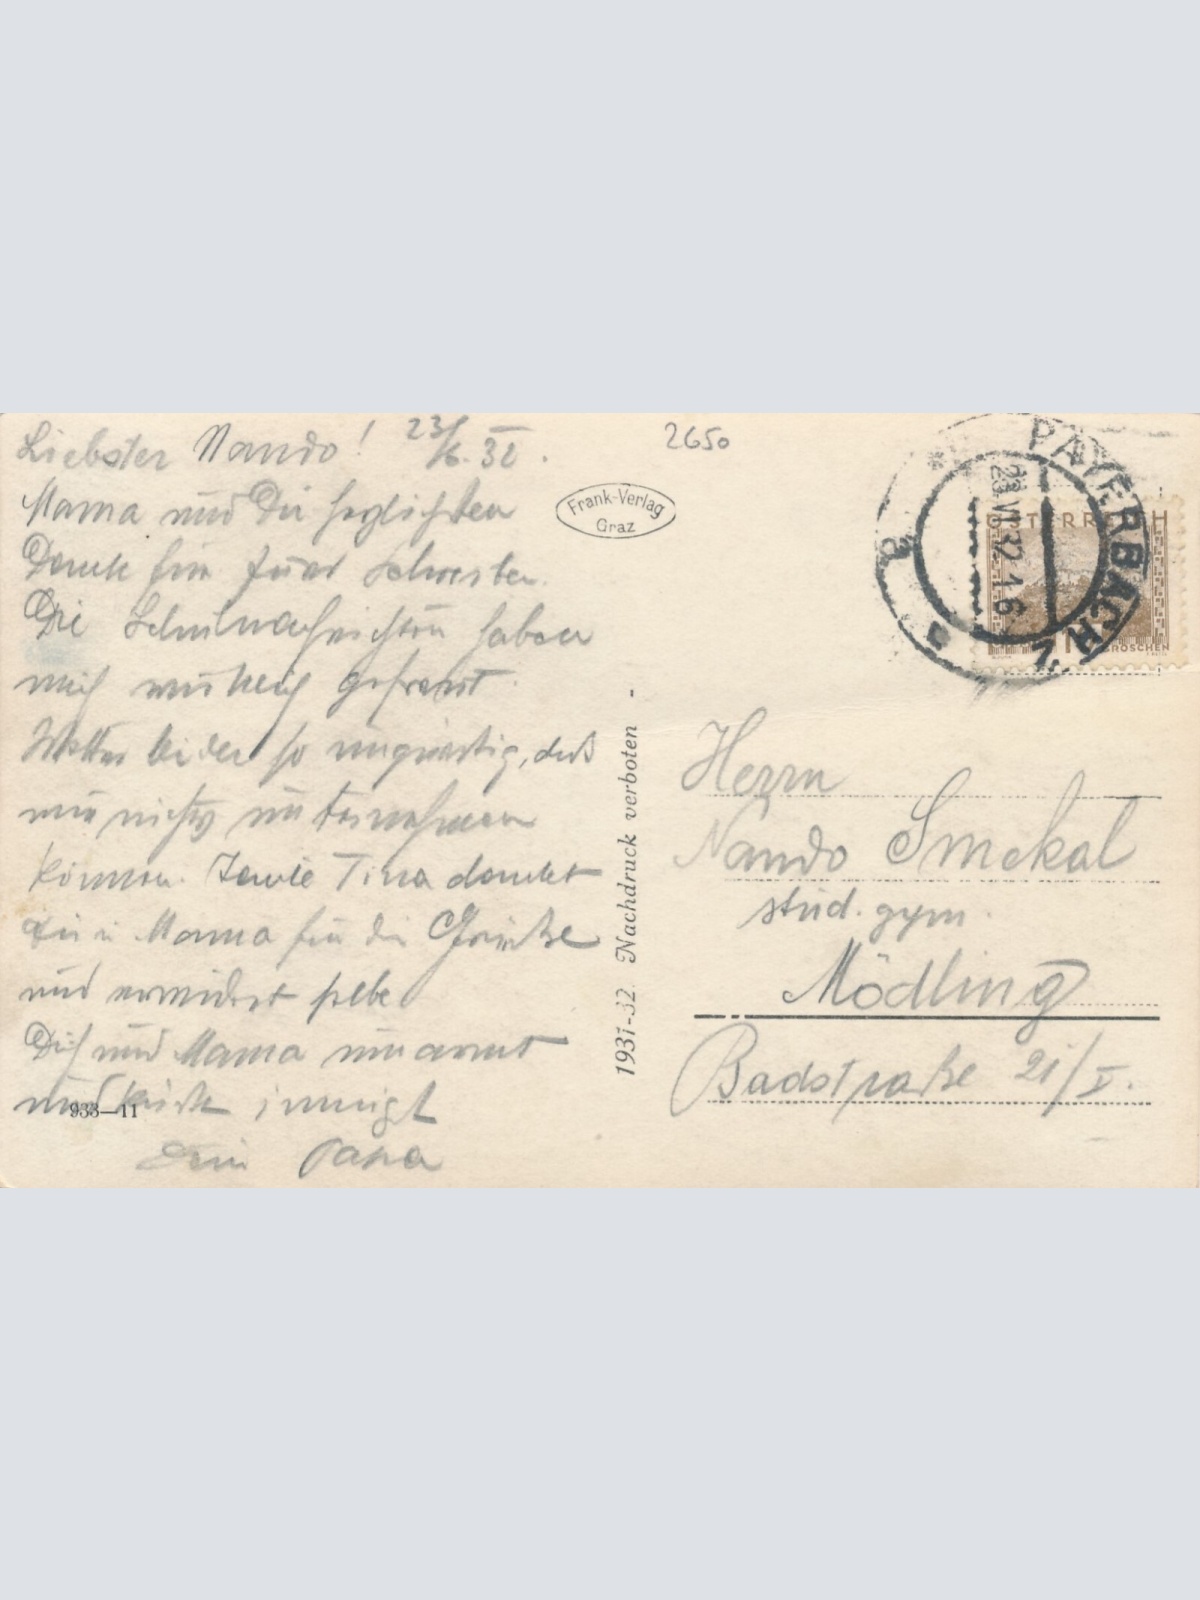 Liebster Nando! 23/6.32.
Mama und Dir herzlichsten
Dank für Eure Schreiben.
Die Schulnachrichten haben
mich wirklich gefreut.
Wetter leider so ungünstig, daß
wir nichts unternehmen
können. Tina dankt
Dir u. Mama für die Grüße
und erwidert selbe
Dich und Mama umarmt
und küßt innigst
Dein Papa
933—11
2650
Frank-Verlag
Graz
1931-32. Nachdruck verboten -
PAYERBACH
23.VI.32 16
ÖSTERREICH
GROSCHEN
Herrn
Nando Smekal
stud. gym.
Mödling
Badstraße 21/I.